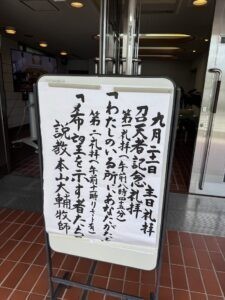 九月二十一日 主日礼拝
召天者記念礼拝
第一礼拝(午前八時四五分)
「わたしのいる所に、あなたがたも」
第二礼拝(午前十時
「希望を示す者たち」
説教 本山大輔牧師